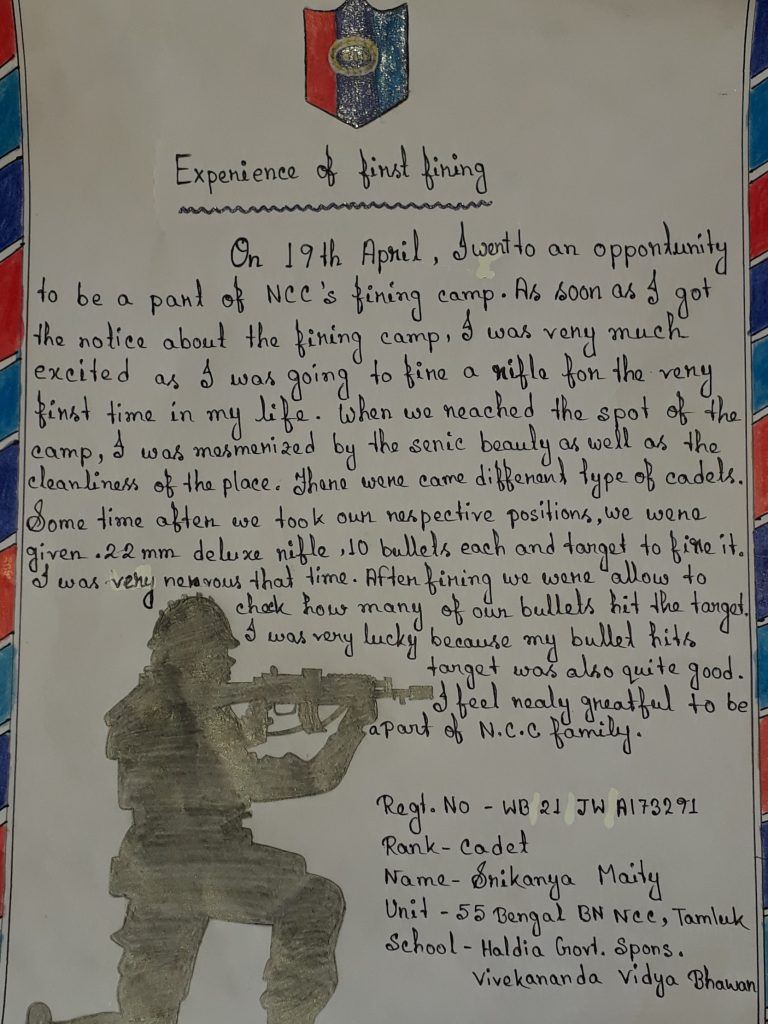 Experience of first firing
On 19th April, I went to an opportunity
to be a part of NCC's firing camp. As soon as I got
the notice about the firing camp, I was very much
excited as I was going to fire a rifle for the very
first time in my life. When we reached the spot of the
camp, I was mesmerized by the senic beauty as well as the
cleanliness of the place. There were came different type of cadets.
Some time after we took our respective positions, we were
given .22 mm deluxe rifle, 10 bullets each and target to fire it.
I was very nervous that time. After firing we were allow to
check how many of our bullets hit the target.
I was very lucky because my bullet hits
target was also quite good.
I feel realy greatful to be
apart of N.C.C family.
Regt. No - WB/21/JW/A173291
Rank - Cadet
Name - Srikanya Maity
Unit - 55 Bengal BN NCC, Tamluk
School - Haldia Govt. Spons.
Vivekananda Vidya Bhawan